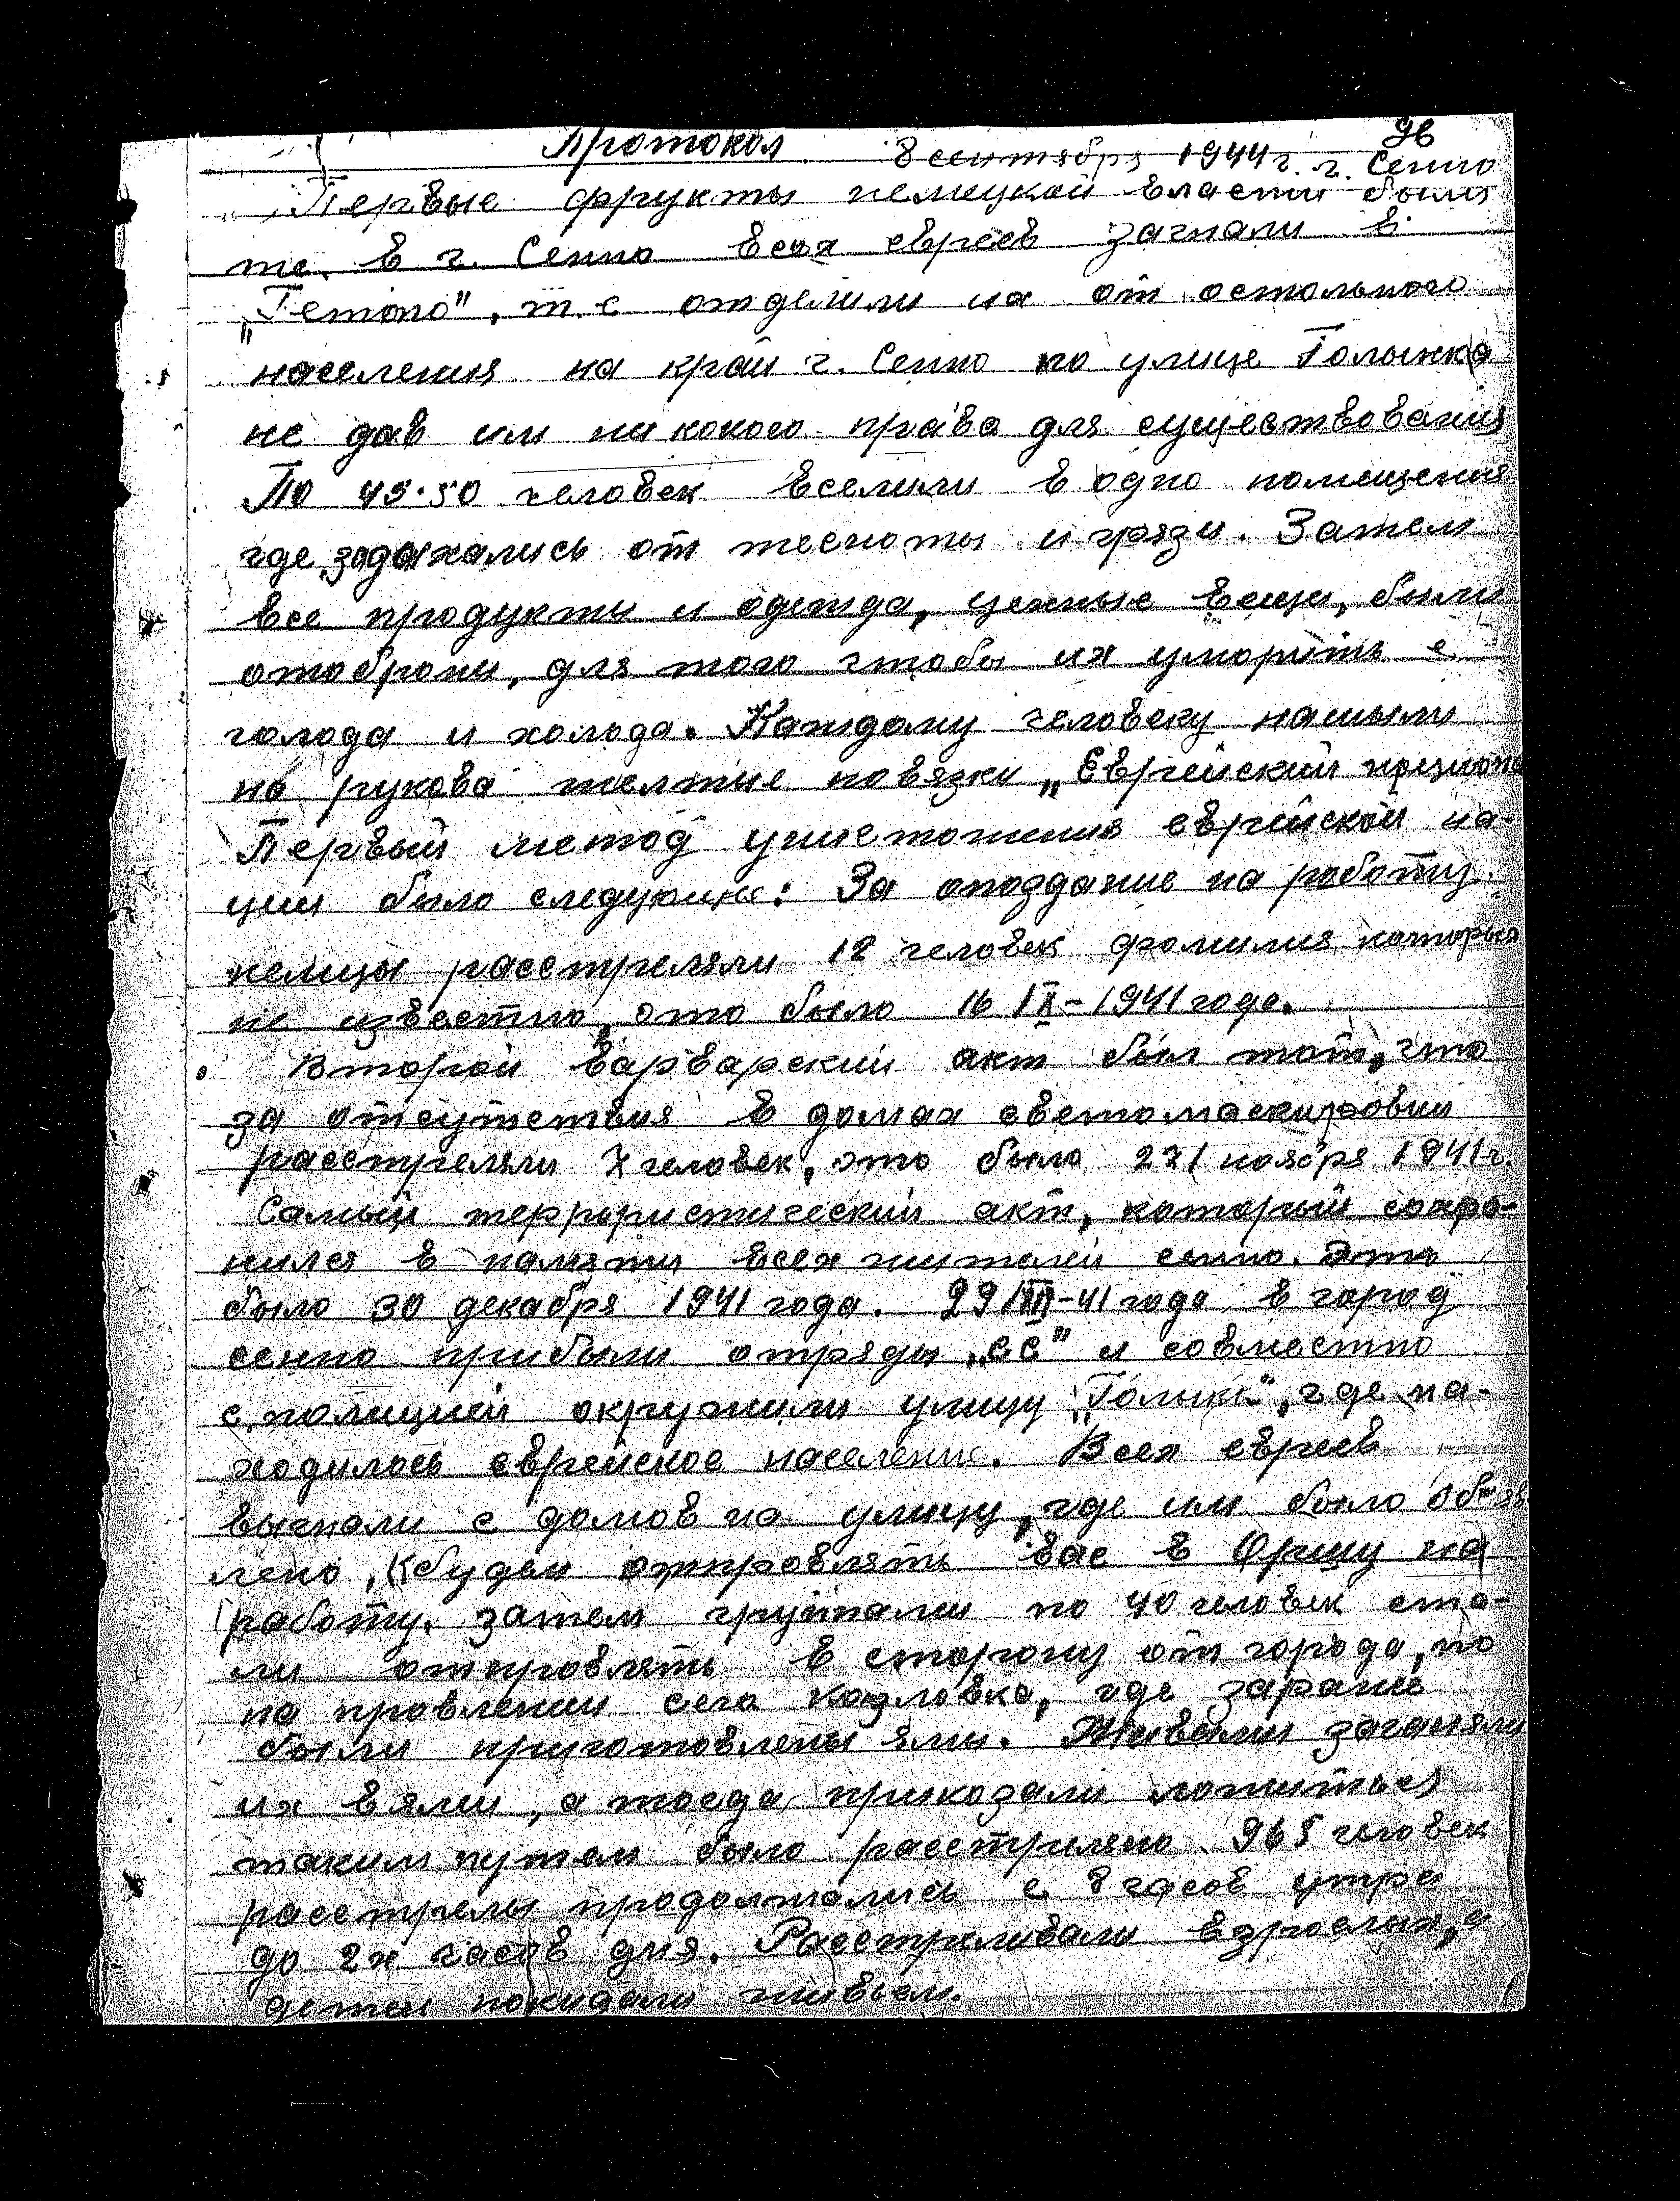 96
Протокол 8 сентября 1944 г. г. Сенно
Первые фрукты немецкой власти были
те. в г. Сенно всех евреев загнали в
„Гетто", т. е отделили их от остального
населения на край г. Сенно по улице Голынка
не дав им ни какого права для существования
По 45-50 человек вселили в одно помещения
где задыхались от тесноты и грязи. Затем
все продукты и одежда, ценные вещи, были
отобраны, для того чтобы их уморить с
голода и холода. Каждому человеку нашыли
на рукава желтые повязки „Еврейский
Первый метод уничтожения еврейской на-
ции было следующие: За опоздание на работу
немцы расстреляли 12 человек фамилия которых
не известно, это было 16 1941 года.
Второй варварский акт был тот, что
за отсутствия в домах светомаскировки
расстреляли 7 человек, это было 27/ ноября 1941 г.
Самый террористический акт, который сохра-
нился в памяти всех жителей сенно. Это
было 30 декабря 1941 года. 29/XII-41 года в город
сенно прибыли отряды „СС" и совместно
с полицией окружили улицу где на-
ходилось еврейское население. Всех евреев
выгнали с домов на улицу, где им было объяв
лено, будем отправлять вас в Оршу на
работу. затем групами по 40 человек ста-
ли отправлять в сторону от города, по
на правлении села Козловка, где заранее
были приготовлены ямы. Живыми загоняли
их в ямы, а тогда приказали ложиться
таким путем было расстреляно 965 человек
расстрелы продолжались с 8 часов утра
до 2х часов дня. Расстреливали взрослых, а
детей покидали живьем.